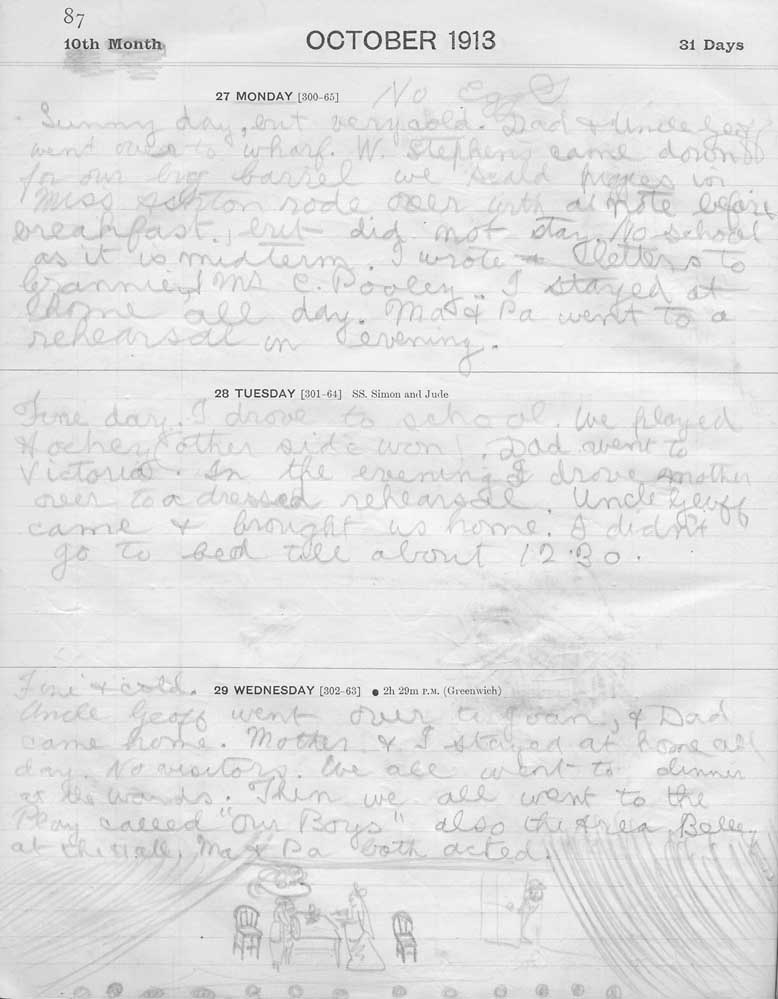 87
10th Month OCTOBER 1913 31 Days
27 MONDAY [300-65] No Eggs
Sunny day, but very cold. Dad & Uncle Geoff
went over to wharf. W. Stephens came down
for our big barrel we scald piggies in
Miss Ashton rode over with a note before
breakfast, but did not stay. No school
as it is midterm. I wrote letters to
Grannie & Ms C. Pooley. I stayed at
home all day. Ma & Pa went to a
rehearsal in evening.
28 TUESDAY [301-64] SS. Simon and Jude
Fine day. I drove to school. We played
Hockey other side won!. Dad went to
Victoria. In the evening I drove mother
over to a dressed rehearsal. Uncle Geoff
came & brought us home. I didn't
go to bed till about 12.30.
Fine & cold. 29 WEDNESDAY [302-63] ● 2h 29m P.M. (Greenwich)
Uncle Geoff went over to Joan, & Dad
came home. Mother & I stayed at home all
day. No visitors. We all went to dinner
at the Wards. Then we all went to the
Play called "Our Boys" also the Area Belle,
at the Hall, Ma & Pa both acted.